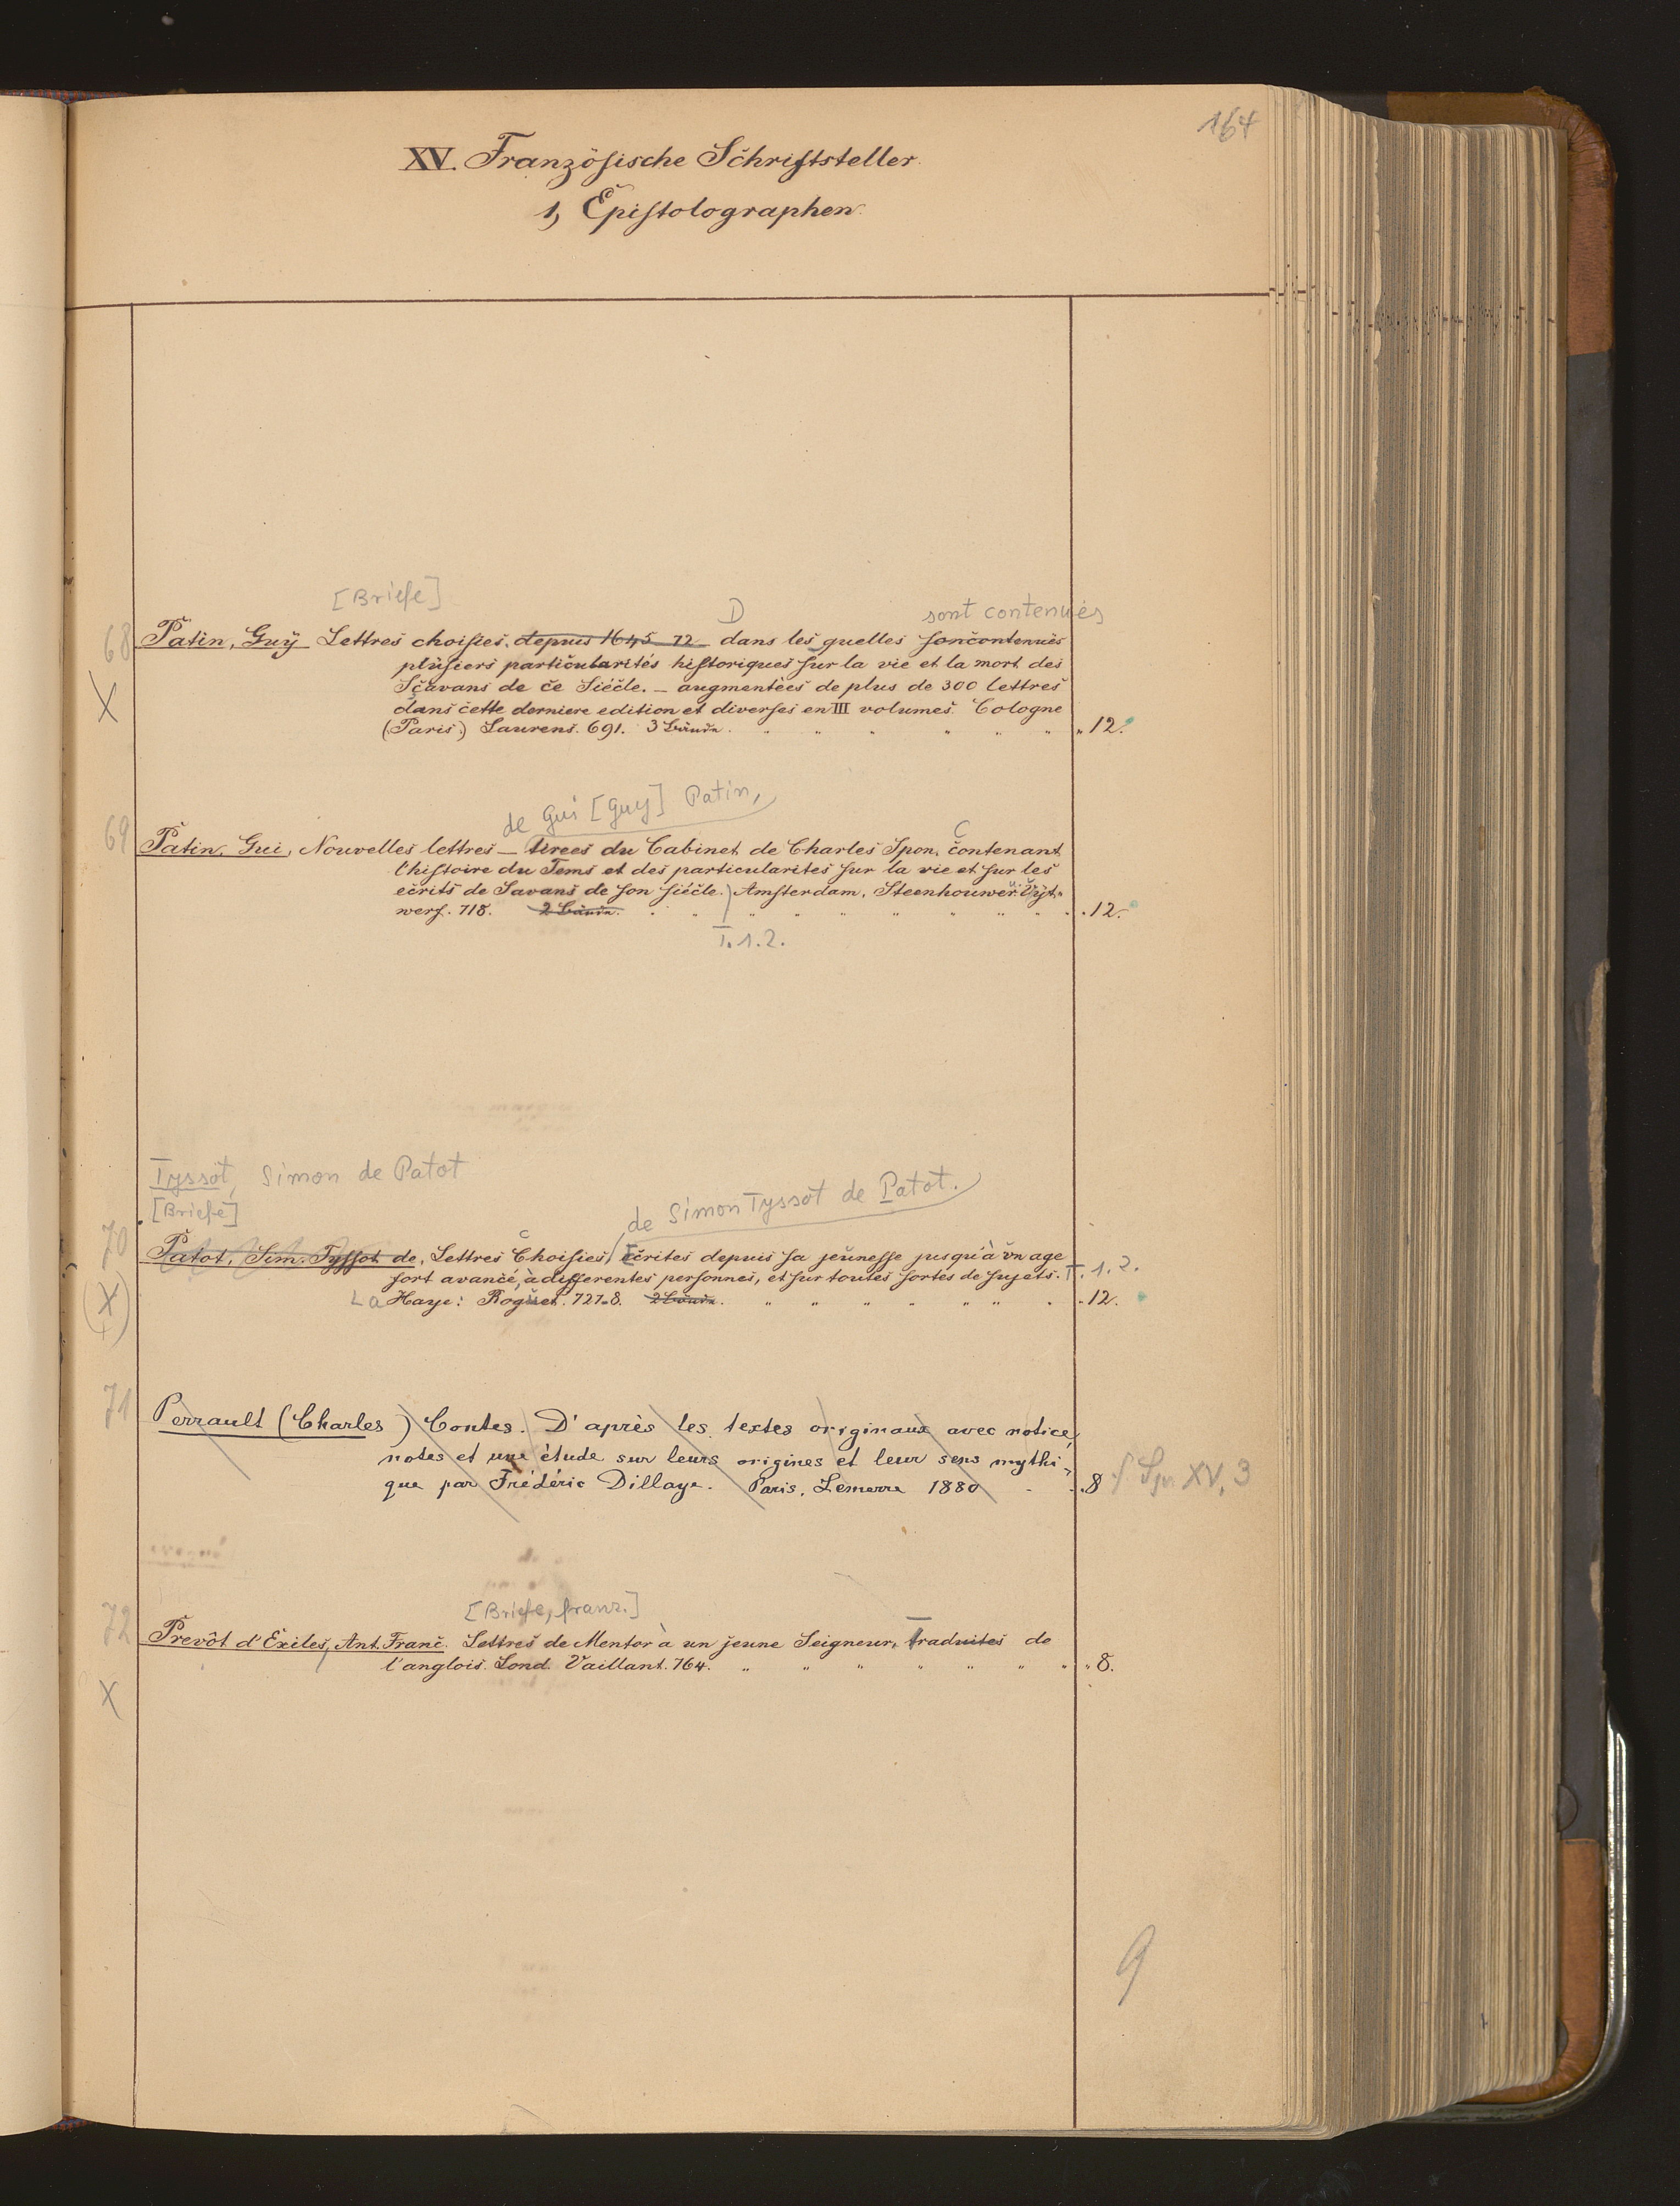 164
XV. Französische Schriftsteller.
1, Epistolographen.
[Briefe] D sont contenuës
68 Patin, Guÿ Lettres choisies, depuis 1645 72 dans les quelles soncontenuës
plusiers particularités historiques sur la vie et la mort des
X Sčavans de ce Siécle. – augmentèes de plus de 300 lettres
dans cette derniere edition et diverses en III volumes. Cologne
(Paris.) Laurens. 691. 3 Bände. „ 12.
de Gui [Guy] Patin, C
69 Patin, Gui, Nouvelles lettres – tirees du Cabinet de Charles Spon, contenant
l'histoire du Tems et des particularites sur la vie et sur les
ecrits de Savans de son siécle. Amsterdam, Steenhouwer. Vÿt-
werf. 718. 2 Bände. „ 12.
T. 1. 2.
Tyssot, Simon de Patot
[Briefe] de Simon Tyssot de Patot.
70 Patot, Sim. Tyssot de, Lettres Choisies, Ecrites depuis sa jeunesse jusqu'à un age
fort avancé, à differentes personnes, et sur toutes sortes de sujets. T. 1. 2.
(X) La Haye: Roguet. 727-8. 2 Bände. „ 12.
71 Perrault (Charles) Contes. D'après les textes originaux avec notice,
notes et une étude sur leurs origines et leur sens mythi-
que par Frédéric Dillaye. Paris, Lemerre 1880 8 s. Spr XV, 3
[Briefe, franz.]
72 Prevôt d'Exiles, Ant. Franc. Lettres de Mentor à un jeune Seigneur, Traduites de
l'anglois. Lond. Vaillant. 764. „ 8.
X
9